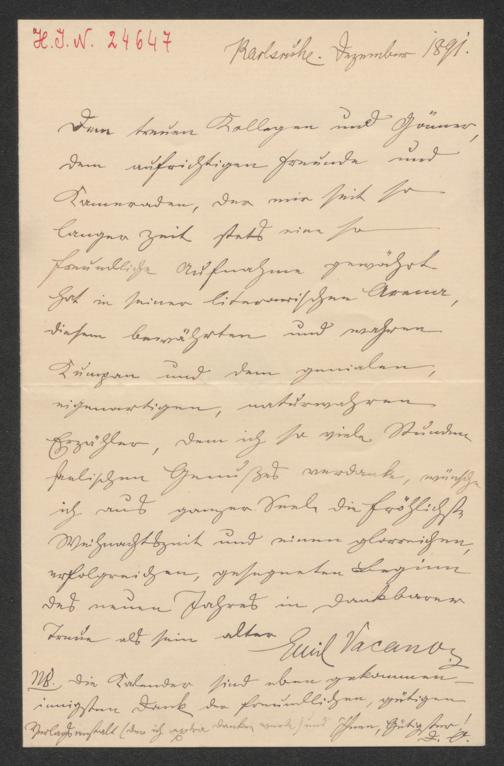 H. I. N. 24647
Karlsruhe. Dezember 1891.
Dem treuen Kollegen und Gönner,
dem aufrichtigen Freunde und
Kameraden, der mir seit so
langer Zeit stets eine so
freundliche Aufnahme gewährt
hat in seiner literarischen Arena,
diesem bewährten und wahren
Kumpan und dem genialen,
eigenartigen, naturwahren
Erzähler, dem ich so viele Stunden
seelischen Genußes verdanke, wünsche
ich aus ganzer Seele die fröhlichste
Weihnachtszeit und einen glorreichen,
erfolgreichen, gesegneten Beginn
des neuen Jahres in dankbarer
Treue als sein alter
Emil Vacano
NB. die Kalender sind eben gekommen –
innigsten Dank der freundlichen, gütigen
Verlagsanstalt (der ich extra danken werde) und Ihnen, Gütigster!
D. O.